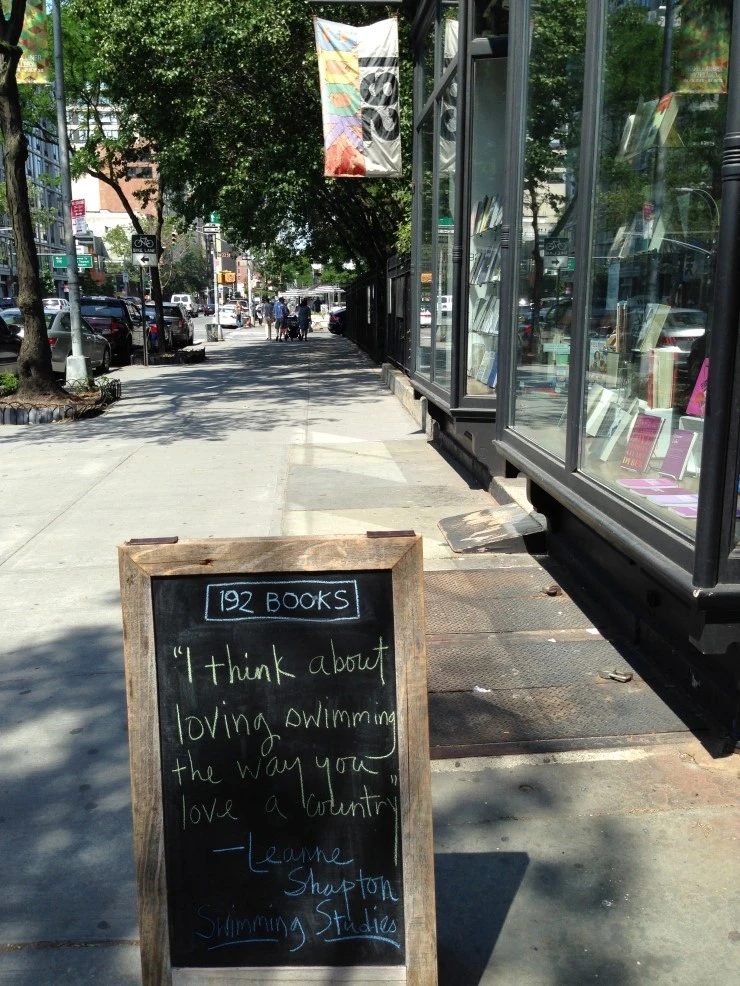 192
BIKE LANE
192 BOOKS
"I think about
loving swimming
the way you
love a country"
—Leanne
Shapton
Swimming Studies